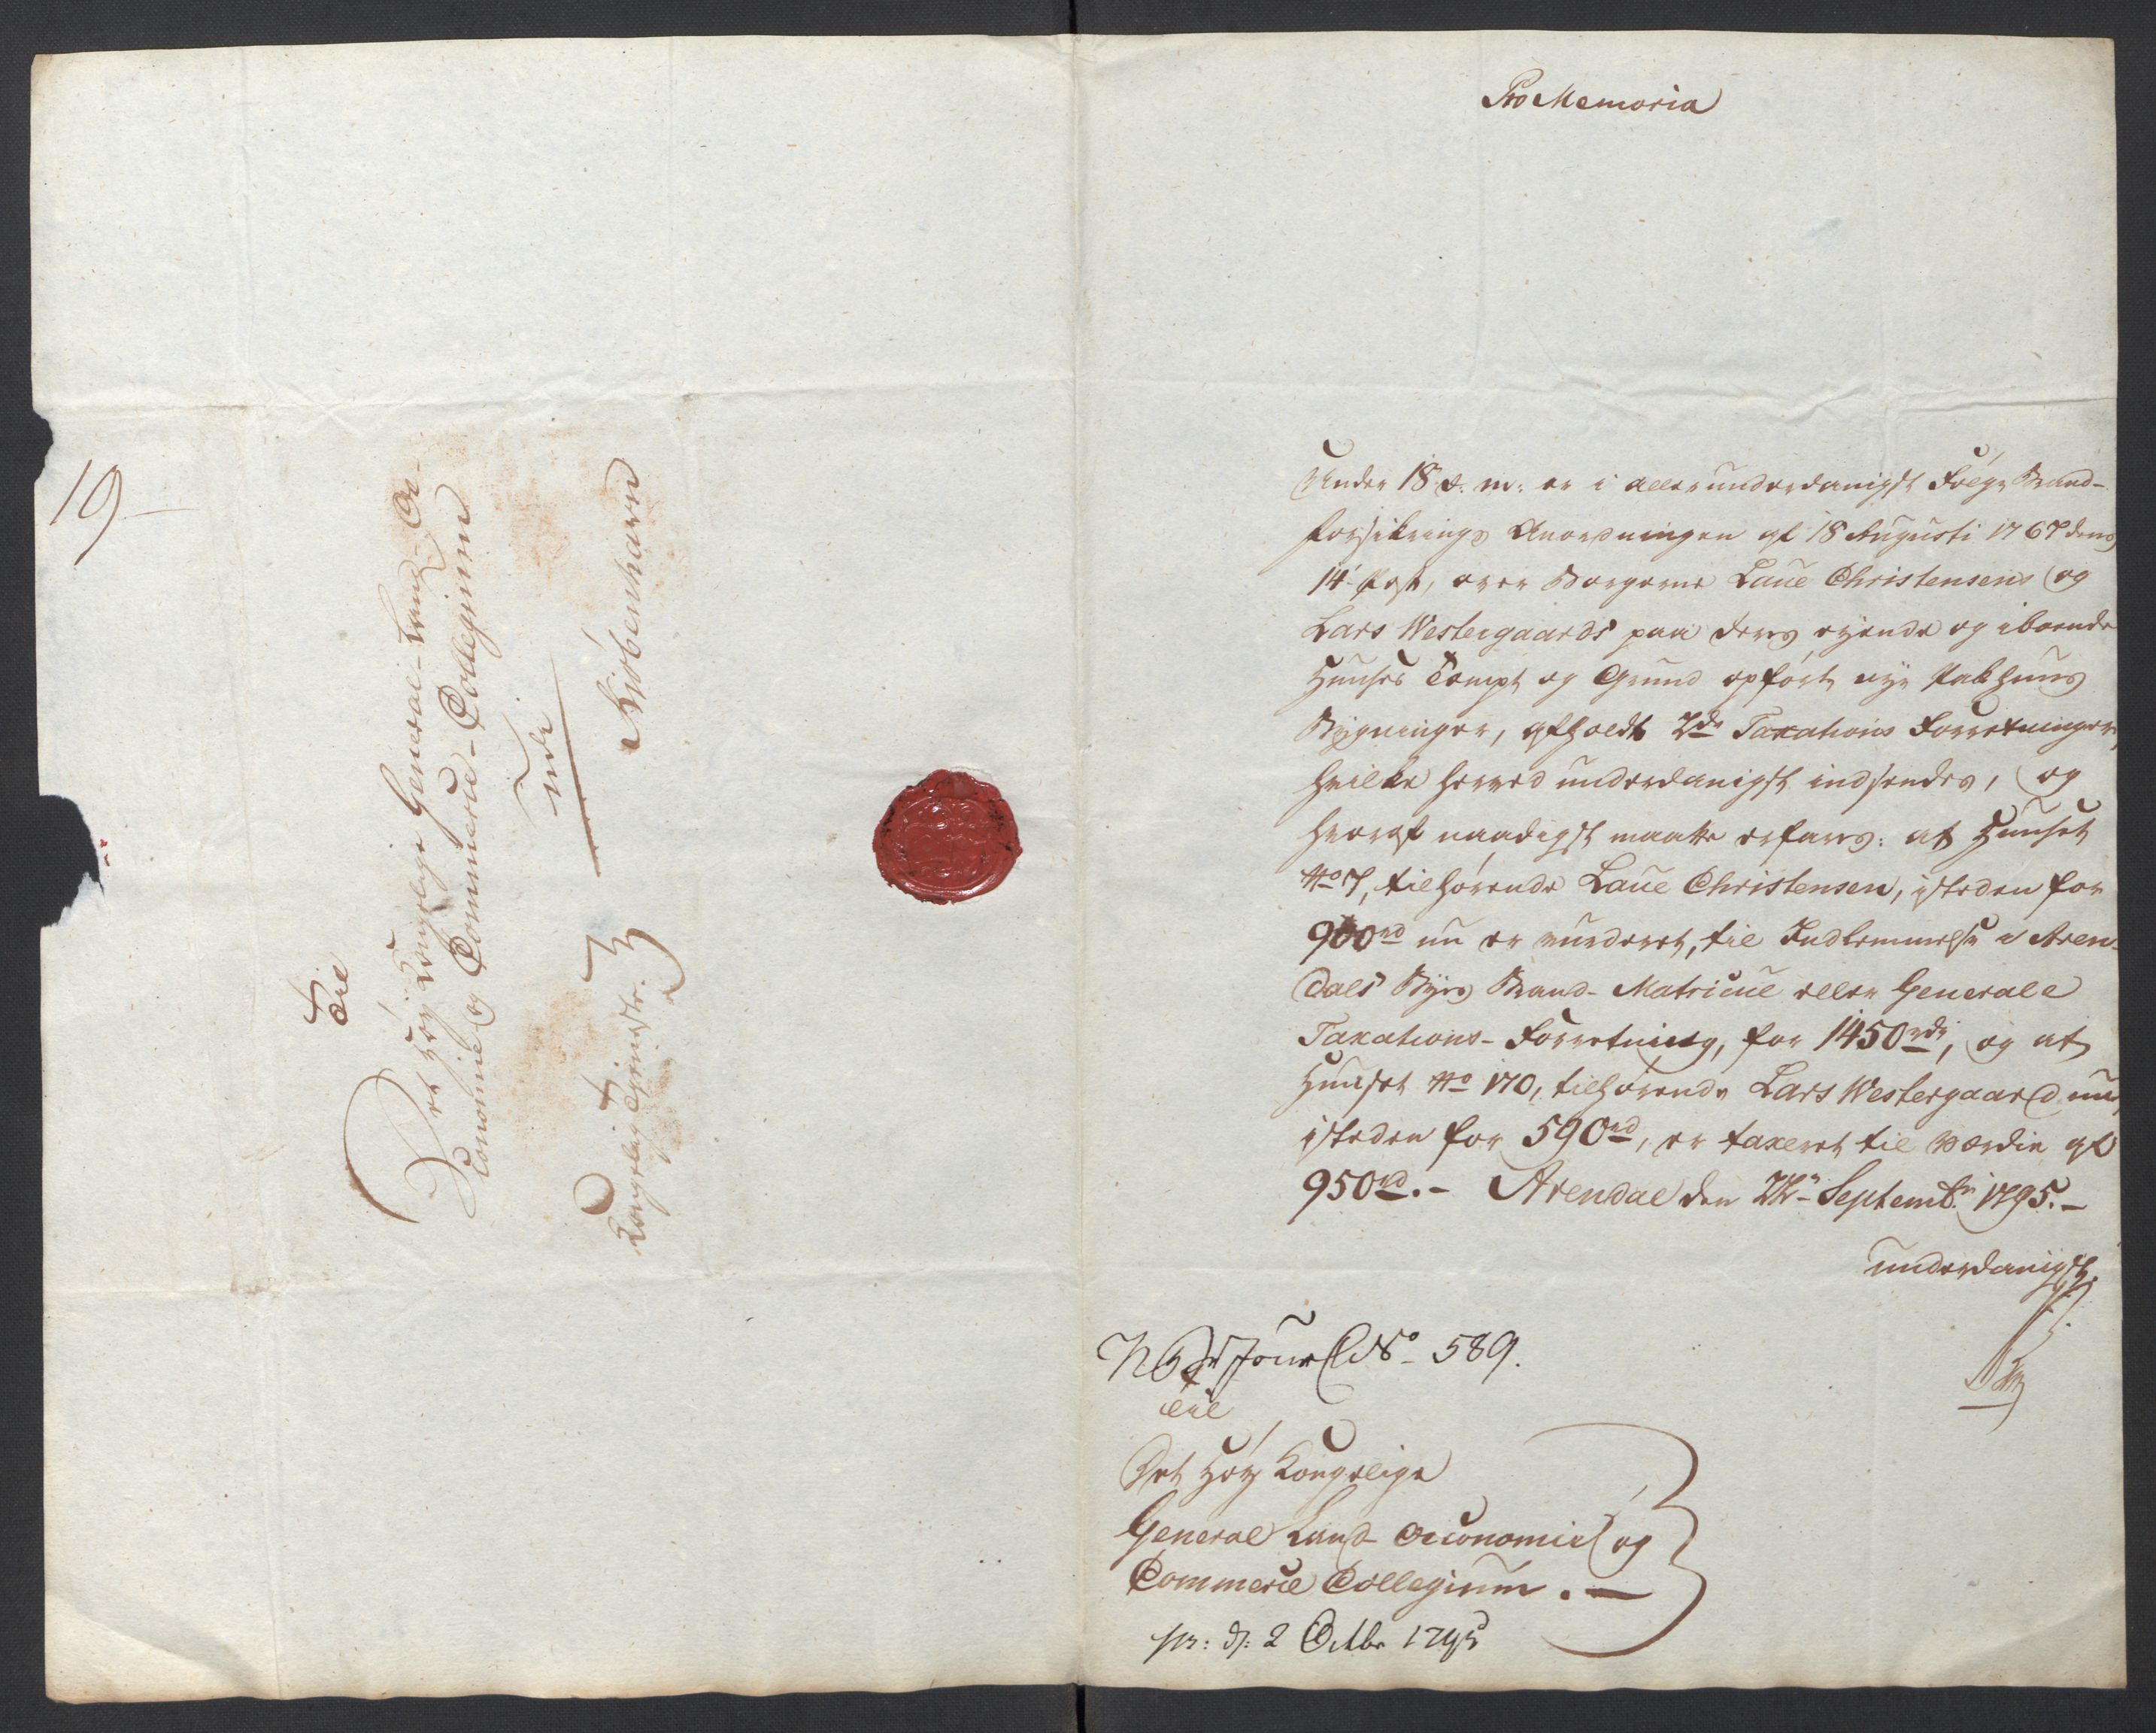 19
Til
Det Høy Kongelige General-Land-Oe-
conomie og Commerce-Collegium
udi
Kiøbenhavn
Kongelig Tjeniste.
Pro Memoria
Under 18 d: m: er i allerunderdanigst Følge Brand-
forsikrings Anordningen af 18 Augusti 1767 dens
14 Post, over Borgerne Laue Christensens og
Lars Westergaards paa deres eyende og iboende
Huuses Tompt og Grund opført nye Pakhuus
Bygninger, afholdt 2de Taxations Forretninger,
hvilke herved underdanigst indsendes, og
hvoraf naadigst maatte erfares: at Huuset
No 7, tilhørende Laue Christensen, isteden for
900rd nu er vurderet, til Indlemmelse i Aren-
dals Byes Brand-Matricul eller Generale
Taxations-Forretning, for 1450rdr, og at
Huuset No 170, tilhørende Lars Westergaard nu,
isteden for 590rd, er taxeret til Værdie af
950rd.- Arendal den Septembr 1795.-
underdanigst
Jour No 589.
Til
Det Høy Kongelige
General Land Oeconomie og
Commerce Collegium.-
pr: d: 2 Octbr 1795